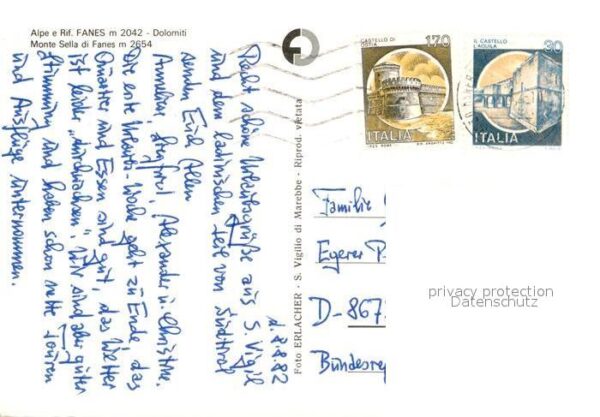 Alpe e Rif. FANES m 2042 - Dolomiti
Monte Sella di Fanes m 2654
d. 8.8.82
Recht schöne Urlaubsgrüße aus S. Vigil
und dem ladinischen Teil von Südtirol
senden Euch Allen
Annelies, Siegfried, Alexander u. Christine.
Die erste Urlaubs-Woche geht zu Ende, das
Quartier und Essen sind gut, das Wetter
ist leider "durchwachsen". Wir sind aber guter
Stimmung und haben schon nette Touren
und Ausflüge unternommen.
Foto ERLACHER - S. Vigilio di Marebbe - Riprod. vietata
CASTELLO DI OSTIA
170
ITALIA
IL CASTELLO L'AQUILA
30
ITALIA
Familie
Egerer
D-867
Bundesrep
privacy protection
Datenschutz